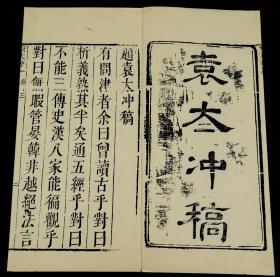 袁太冲稿
題袁太冲稿
有問津者余曰曾讀古乎對曰
析義熟其半矣通五經乎對曰
不能三傳史漢八家能徧觀乎
對曰無暇管晏韓非越絕法言